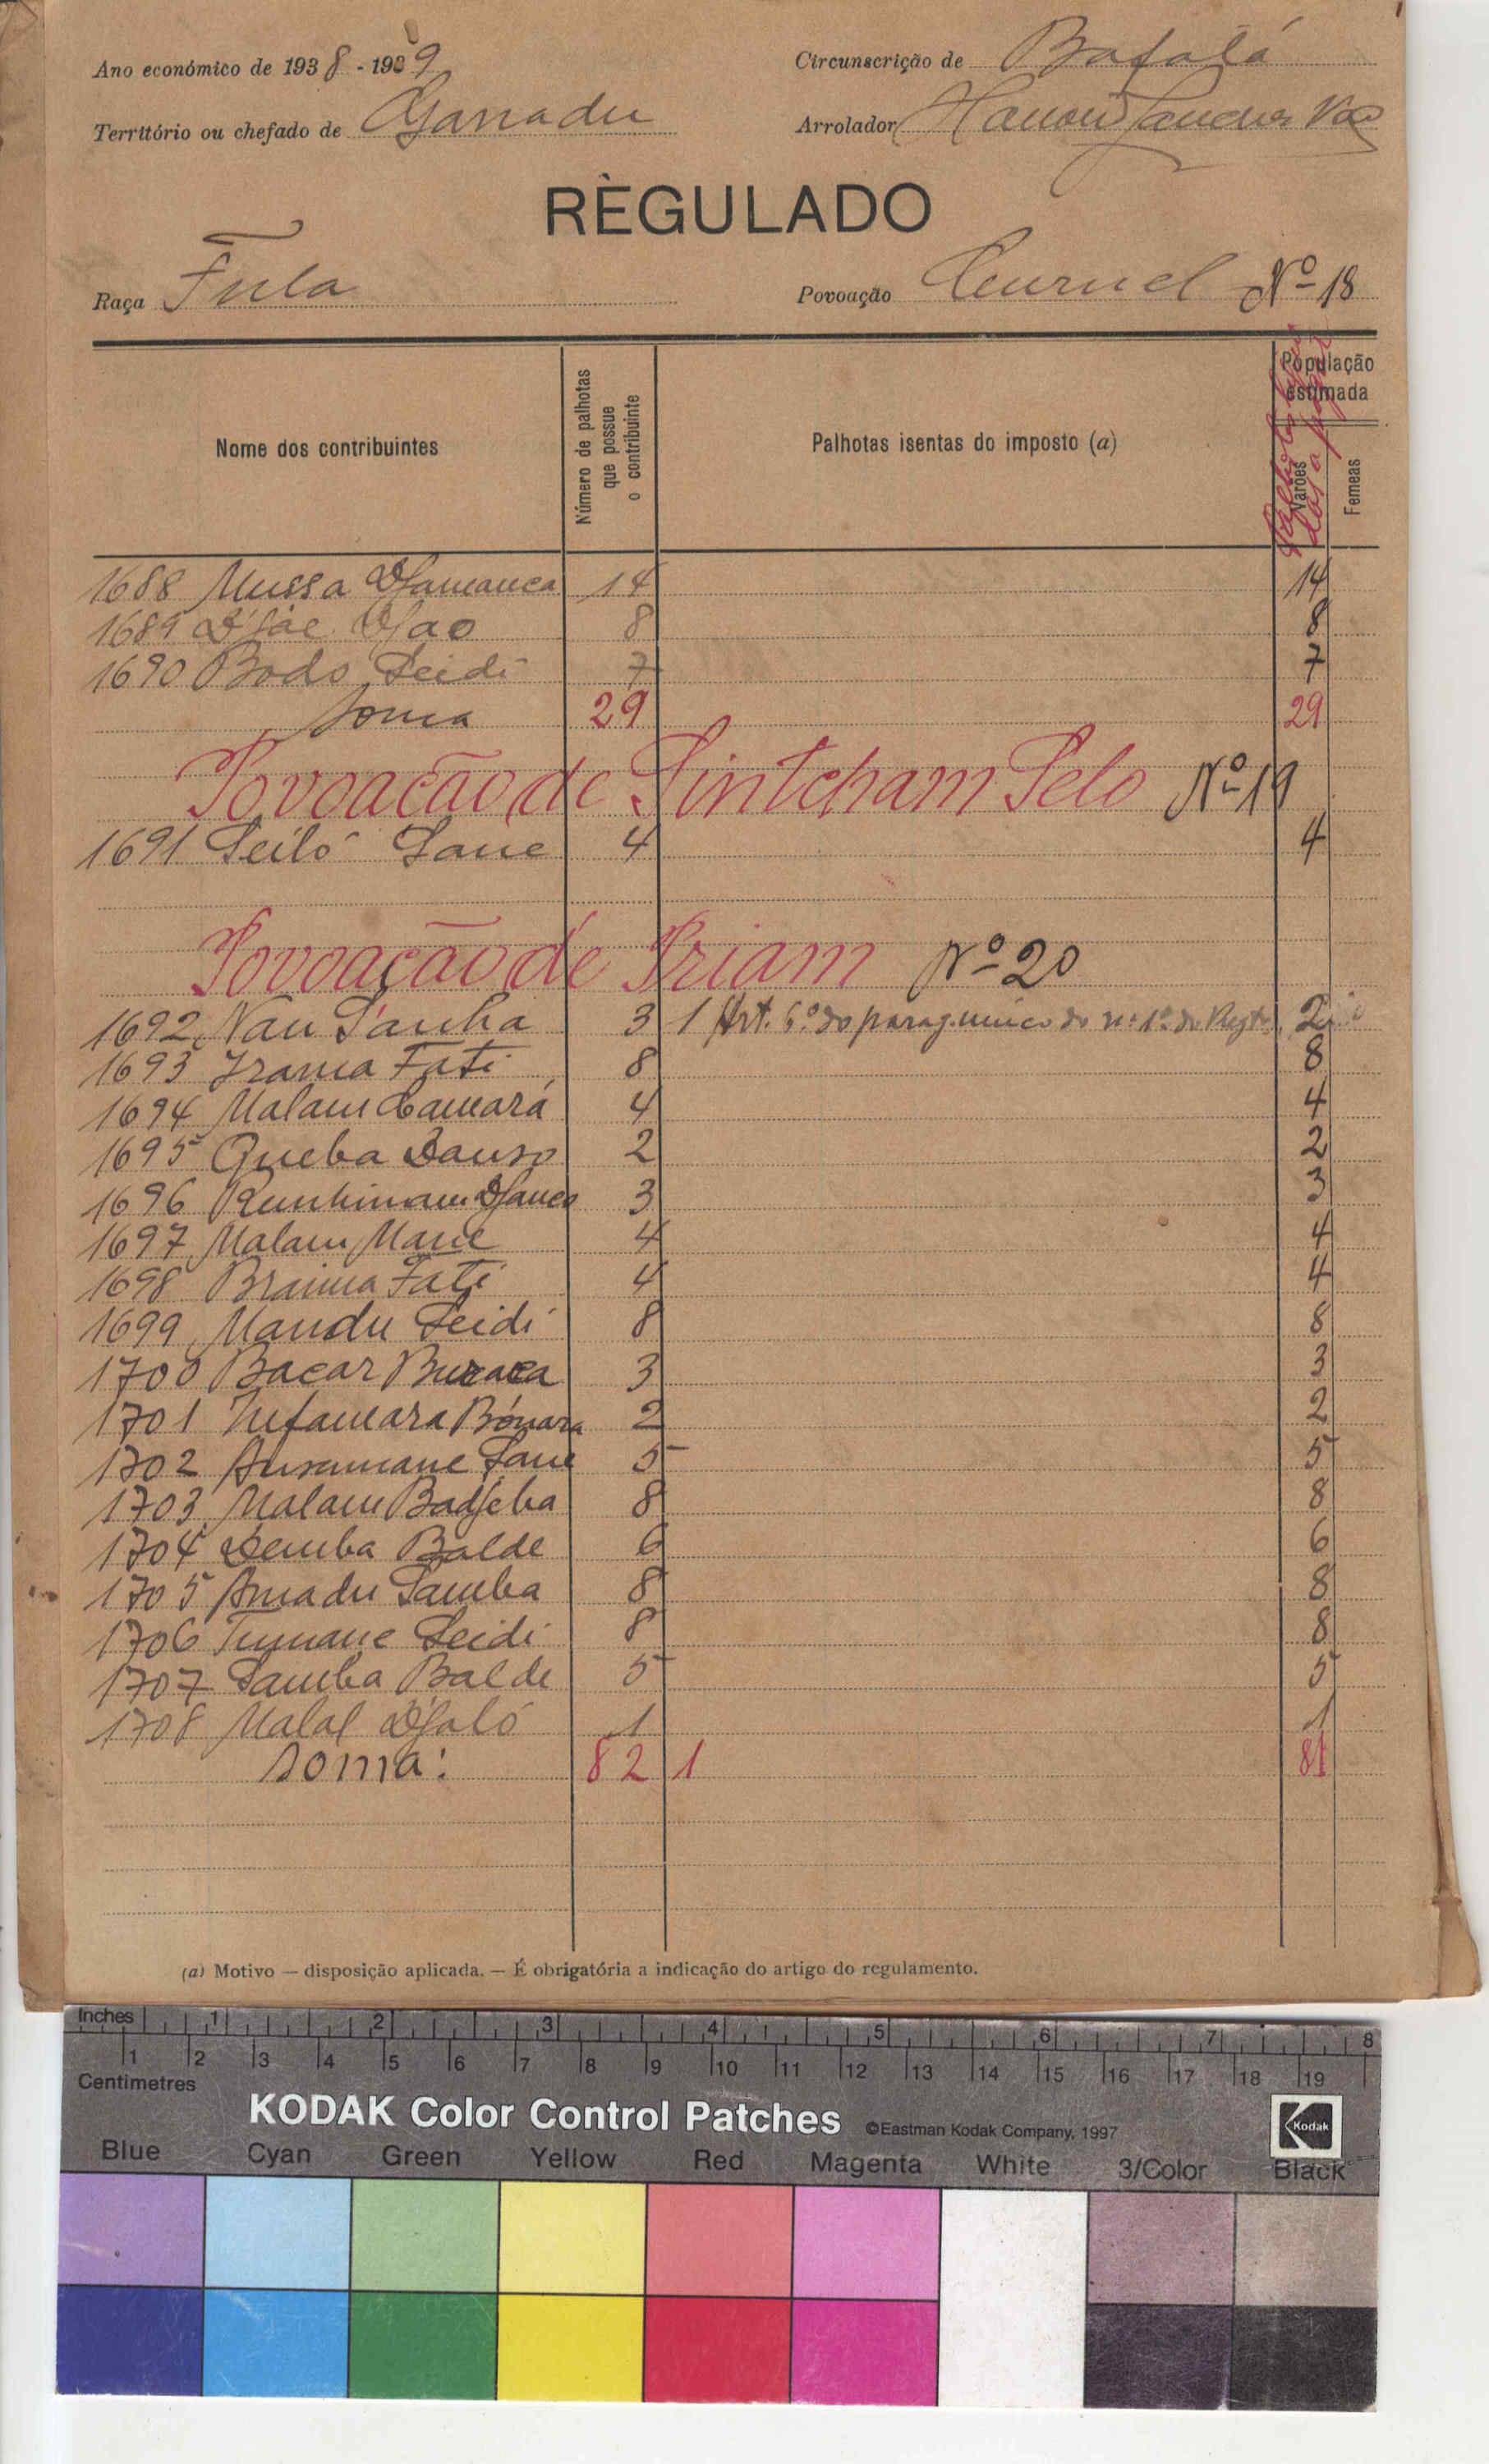 Ano económico de 1938 - 1939
Circunscrição de Bafatá
Território ou chefado de Ganadu
Arrolador
RÈGULADO
Raça Fula
Povoação Curuel Nº 18
Nome dos contribuintes
Número de palhotas que possue o contribuinte
Palhotas isentas do imposto (a)
População estimada
Varões
Femeas
1688 Mussa Djamanca 14 14
1689 Djáe Djao 8 8
1690 Bodo Seidi 7 7
Soma 29 29
Povoação de Sintcham Pelo Nº 19
1691 Seiló Sane 4 4
Povoação de Priam Nº 20
1692 Nan Sanha 3 1 Art. 6º do parag. unico do nº 1º do Regto. 2
1693 Irama Fati 8 8
1694 Malam Camará 4 4
1695 Queba Danso 2 2
1696 3 3
1697 Malam Mane 4 4
1698 Braima Fati 4 4
1699 Mandu Seidi 8 8
1700 Bacar 3 3
1701 Infamara 2 2
1702 Ansumane Sane 5 5
1703 Malam Badjeba 8 8
1704 Demba Balde 6 6
1705 Amadu Samba 8 8
1706 Tumane Seidi 8 8
1707 Samba Balde 5 5
1708 Malal Djaló 1 1
Soma: 82 1 81
(a) Motivo — disposição aplicada. — É obrigatória a indicação do artigo do regulamento.
Inches 1 2 3 4 5 6 7 8
1 2 3 4 5 6 7 8 9 10 11 12 13 14 15 16 17 18 19
Centimetres
KODAK Color Control Patches ©Eastman Kodak Company, 1997 Kodak
Blue Cyan Green Yellow Red Magenta White 3/Color Black